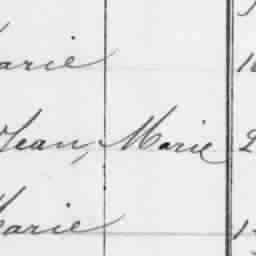 Marie
Jean, Marie 2
Marie